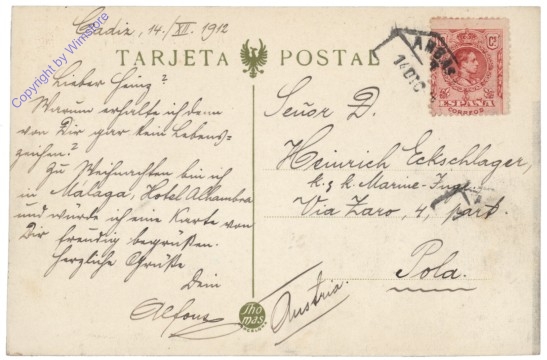 Cadiz, 14./XII. 1912
TARJETA POSTAL
Lieber Heinz?
Warum erhalte ich denn
von Dir gar kein Lebens-
zeichen?
Zu Weihnachten bin ich
in Málaga, Hotel Alhambra
und würde ich eine Karte von
Dir freudig begrüßen.
Herzliche Grüße
Dein
Alfons
Señor D.
Heinrich Eckschlager,
k. & k. Marine-Ingr.
Via Zaro, 4, part.
Pola.
Austria.
Thomas
ESPAÑA
CORREOS
14 DIC
Copyright by Winstore